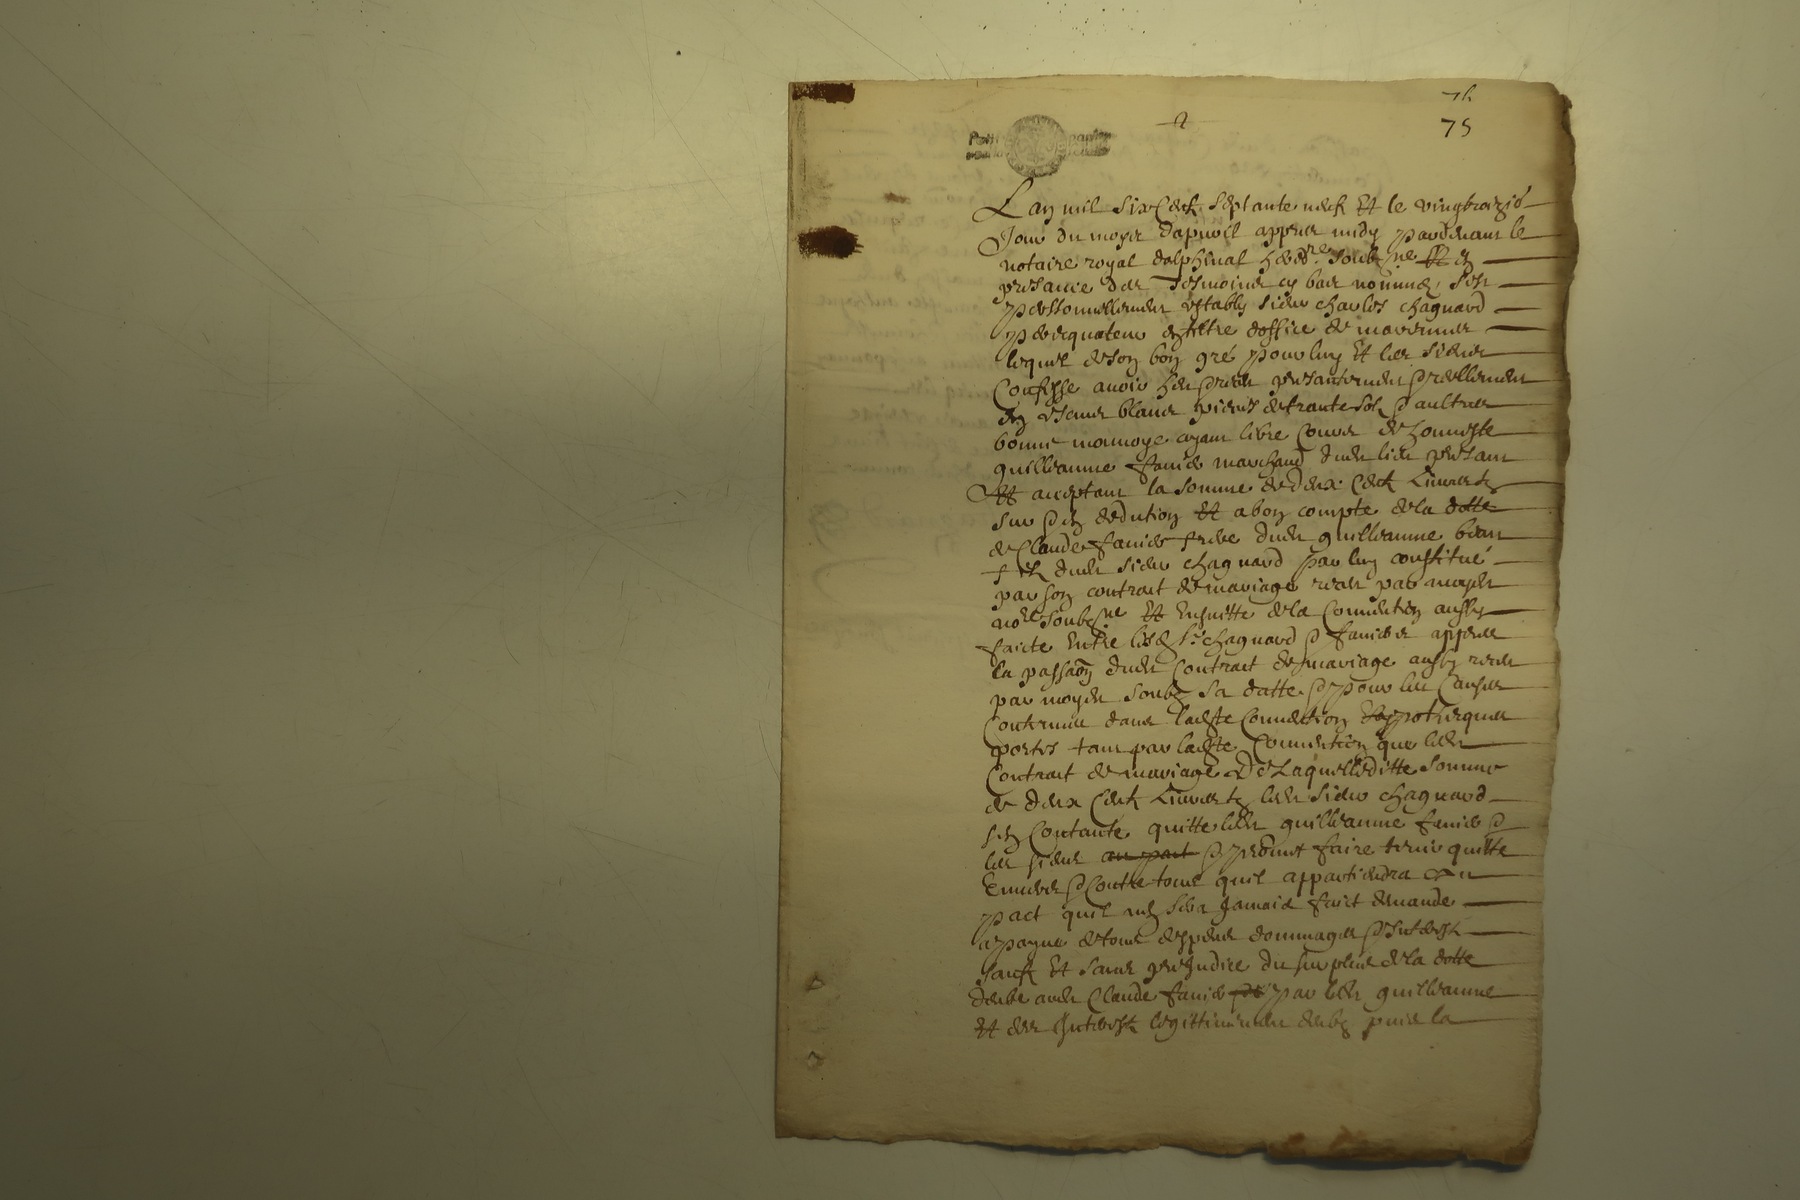 75
Lan mil six Cent septante neuf Et le vingtroizie
Jour du moys dapvril appres midy pardevant le
notaire royal dalphinal soubzne Et en
presance des Tesmoins cy bas nommes, sest
personnellement estably sieur charles chagnard
perequateur en tiltre doffice de
lequel de son bon gré pour luy Et les siens
Confesse avoir presantement reellement
En escus blancs pieces de trante sols aultres
bonne monnoye ayant libre Cours de honneste
guilleaume favier marchand dudit lieu presant
Et acceptant la somme de deux Cent Livres
sur en dedution Et a bon compte de la dotte
de Claude favier frere dudit guilleaume beau
fils dudit sieur chagnard par luy constitué
par son contrait de mariage receu par
nore soubzne Et Ensuitte de la Convention aussy
faicte Entre lesd sr chagnard favier appres
la passaon dudit Contrait de mariage aussy receu
par moydit soubz sa datte pour les Causes
Contenues dans ladite Convention hypotheques
portes tant par ladite Convention que ledit
Contrait de mariage De Laquelleditte somme
de deux Cent Livres ledit sieur chagnard
sen Contante quitte ledit guilleaume favier
les siens promet faire tenir quitte
Envers Contre tous quil appartiendra
pact quil nen sera Jamais faict demande
a payne de tous despens dommages Interest
sauf Et sans prejudice du surplus de la dotte
deube audit Claude favier par ledit guilleaume
Et des Interest legittimement deubz puis la